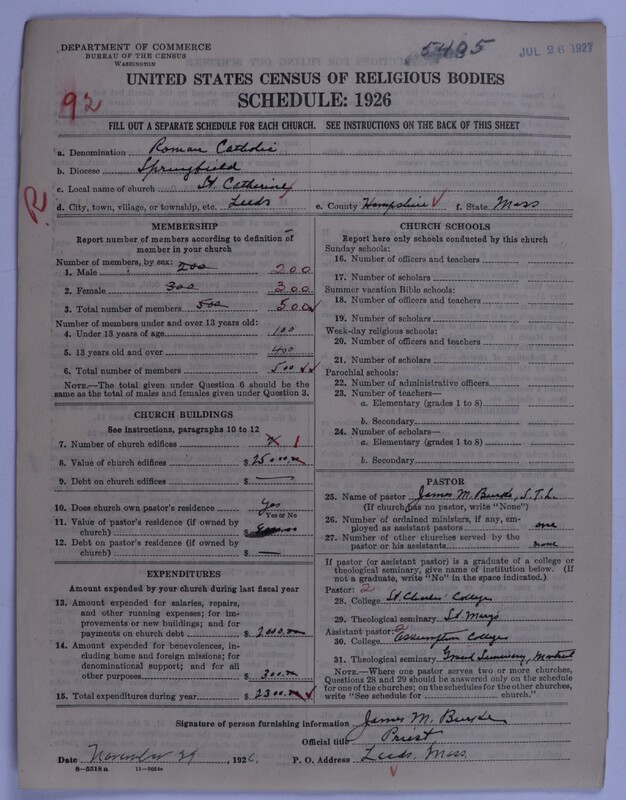 DEPARTMENT OF COMMERCE
BUREAU OF THE CENSUS
WASHINGTON
5495
JUL 26 1927
UNITED STATES CENSUS OF RELIGIOUS BODIES
SCHEDULE: 1926
92
FILL OUT A SEPARATE SCHEDULE FOR EACH CHURCH. SEE INSTRUCTIONS ON THE BACK OF THIS SHEET
R.
a. Denomination Roman Catholic
b. Diocese Springfield
c. Local name of church St. Catherine
d. City, town, village, or township, etc. Leeds e. County Hampshire f. State Mass
MEMBERSHIP
Report number of members according to definition of
member in your church
Number of members, by sex:
1. Male 200 200
2. Female 300 300
3. Total number of members 500 500
Number of members under and over 13 years old:
4. Under 13 years of age 100
5. 13 years old and over 400
6. Total number of members 500
NOTE.—The total given under Question 6 should be
same as the total of males and females given under Question 3.
CHURCH BUILDINGS
See instructions, paragraphs 10 to 12
7. Number of church edifices 1
8. Value of church edifices $ 25000.00
9. Debt on church edifices $ —
10. Does church own pastor's residence Yes
Yes or No
11. Value of pastor's residence (if owned by
church) $
12. Debt on pastor's residence (if owned by
church) $ —
EXPENDITURES
Amount expended by your church during last fiscal year
13. Amount expended for salaries, repairs,
and other running expenses; for im-
provements or new buildings; and for
payments on church debt $ 2000.00
14. Amount expended for benevolences, in-
cluding home and foreign missions; for
denominational support; and for all
other purposes $ 300.00
15. Total expenditures during year $ 2300.00
CHURCH SCHOOLS
Report here only schools conducted by this church
Sunday schools:
16. Number of officers and teachers
17. Number of scholars
Summer vacation Bible schools:
18. Number of officers and teachers
19. Number of scholars
Week-day religious schools:
20. Number of officers and teachers
21. Number of scholars
Parochial schools:
22. Number of administrative officers
23. Number of teachers—
a. Elementary (grades 1 to 8)
b. Secondary
24. Number of scholars—
a. Elementary (grades 1 to 8)
b. Secondary
PASTOR
25. Name of pastor James M. Burke, S.T.L.
(If church has no pastor, write "None")
26. Number of ordained ministers, if any, em-
ployed as assistant pastors one
27. Number of other churches served by the
pastor or his assistants none
If pastor (or assistant pastor) is a graduate of a college or
theological seminary, give name of institution below. (If
not a graduate, write "No" in the space indicated.)
Pastor: 2
28. College St. Charles College
29. Theological seminary St. Mary's
Assistant pastor: 2
30. College Assumption College
31. Theological seminary Grand Seminary, Montreal
NOTE.—Where one pastor serves two or more churches,
Questions 28 and 29 should be answered only on the schedule
for one of the churches; on the schedules for the other churches,
write "See schedule for church."
Signature of person furnishing information James M. Burke
Official title Priest
Date November 29, 1926. P. O. Address Leeds, Mass.
8—5518a